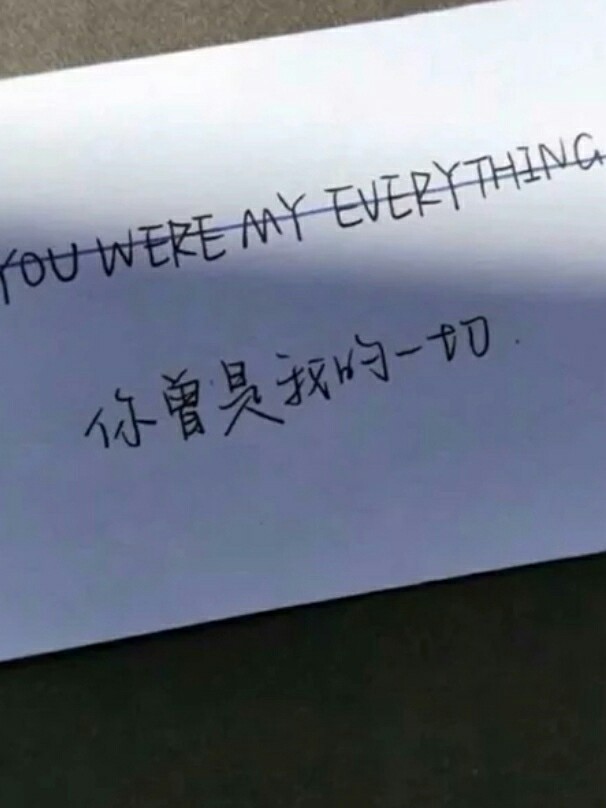 YOU WERE MY EVERYTHING
你曾是我的一切.